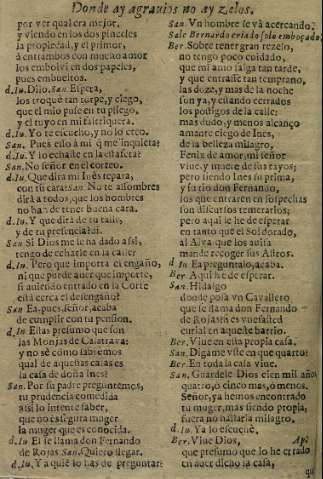 Donde ay agrauios no ay zelos.
por ver qual era mejor,
y viendo en los dos pinceles
la propiedad, y el primor,
à entrambos con mucho amor
los embolvi en dos papeles,
pues embueltos.
d. Iu. Dilo. San. Espera,
los troquè tan torpe, y ciego,
que el mio puse en tu pliego,
y el tuyo en mi faltriquera.
d. Iu. Yo te escucho, y no lo creo.
San. Pues esso à mi què me inquieta?
d. Iu. Y lo echaste en la estafeta?
San. No señor en el correo.
d. Iu. Que dirà mi Inès repara,
con tu cara? San. No te assombres
dirà a todos, que los hombres
no han de tener buena cara.
d. Iu. Y que dirà de tu talle,
y de tu presencia?
San. Si Dios me le ha dado assi,
tengo de echarle en la calle?
d. Iu. Pero que importa el engaño,
ni que puede auer que importe,
si auiendo entrado en la Corte
està cerca el desengaño?
San. Ea, pues, señor, acaba
de cumplir con tu passion.
d. Iu. Estas presumo que son
las Monjas de Calatraua;
y no sè como sabremos
qual de aquestas casas es
la casa de doña Ines?
San. Por su padre preguntemos,
tu prudencia comedida
assi lo intente saber,
que no es segura muger
la muger que es conocida.
d. Iu. El se llama don Fernando
de Rojas. San. Quiero llegar.
d. Iu. Y a què lo has de preguntar?
San. Vn hombre se và acercando.
Sale Bernardo criado solo embozado.
Ber. Sobre tener gran rezelo,
no tengo poco cuidado,
que mi amo salga tan tarde,
y que entrasse tan temprano,
las doze, y mas de la noche
son ya, y estando cerrados
los postigos de la calle;
mas dudo, y menos alcanço
amante ciego de Ines,
de la belleza milagro,
Fenix de amor, mi señor
viue, y muere de sus rayos;
pero siendo Ines su prima,
y su tio don Fernando,
los que entraren en sospechas
son discursos temerarios;
pero aqui le he de esperar
en tanto que el Sol dorado,
al Alva que los auisa
mande recoger sus Astros.
d. Iu. Ea preguntalo, acaba.
Ber. Aqui he de esperar.
San. Hidalgo
donde posa vn Cavallero
que se llama don Fernando
de Rojas? si es vuessasted
curial en aqueste barrio.
Ber. Viue en esta propia casa.
San. Digame v se en que quarto?
Ber. En toda la casa viue.
San. Guardele Dios cien mil años
quatro, o cinco mas, o menos.
Señor, ya hemos encontrado
tu muger, mas siendo propia,
fuera no hallarla milagro.
d. Iu. Ya lo escuchè.
Ber. Viue Dios, Ap.
que presumo que lo he errado
en auer dicho la casa,
qu